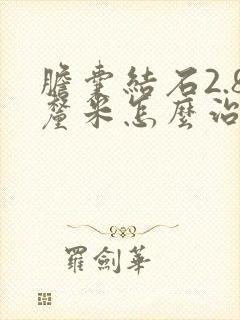 膽囊結石2.8
釐米怎麼治
羅劍華